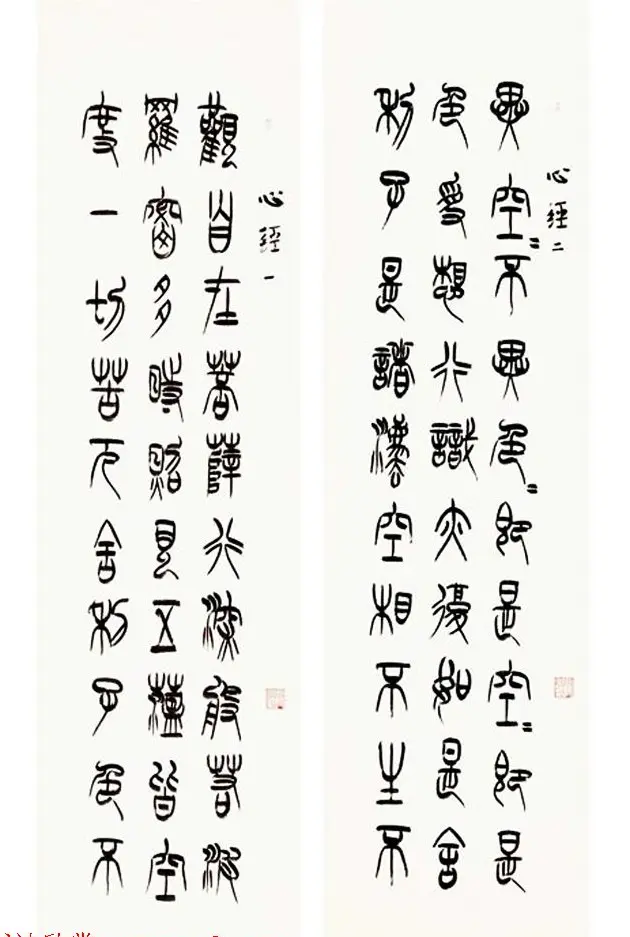 心經一
觀自在菩薩行深般若波
羅蜜多時照見五蘊皆空
度一切苦厄舍利子色不
心經二
異空〻不異色〻即是空〻即是
色受想行識亦復如是舍
利子是諸灋空相不生不